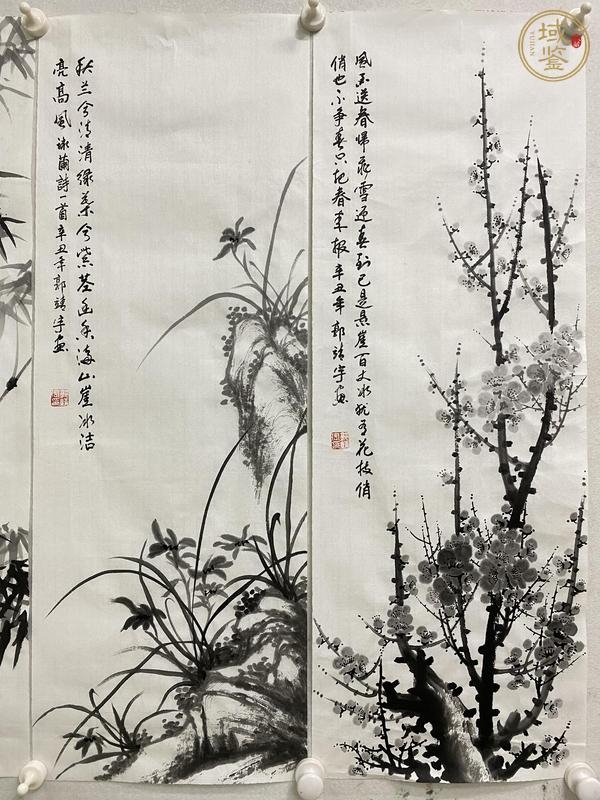 域鑒
YUJIAN
風雨送春帰飛雪迎春到已是悬崖百丈冰犹有花枝俏
俏也不争春只把春来报 辛丑年 郭靖宇画
秋兰兮清清绿葉兮紫茎幽香满山崖冰洁
亮高風 咏蘭詩一首 辛丑年 郭靖宇画